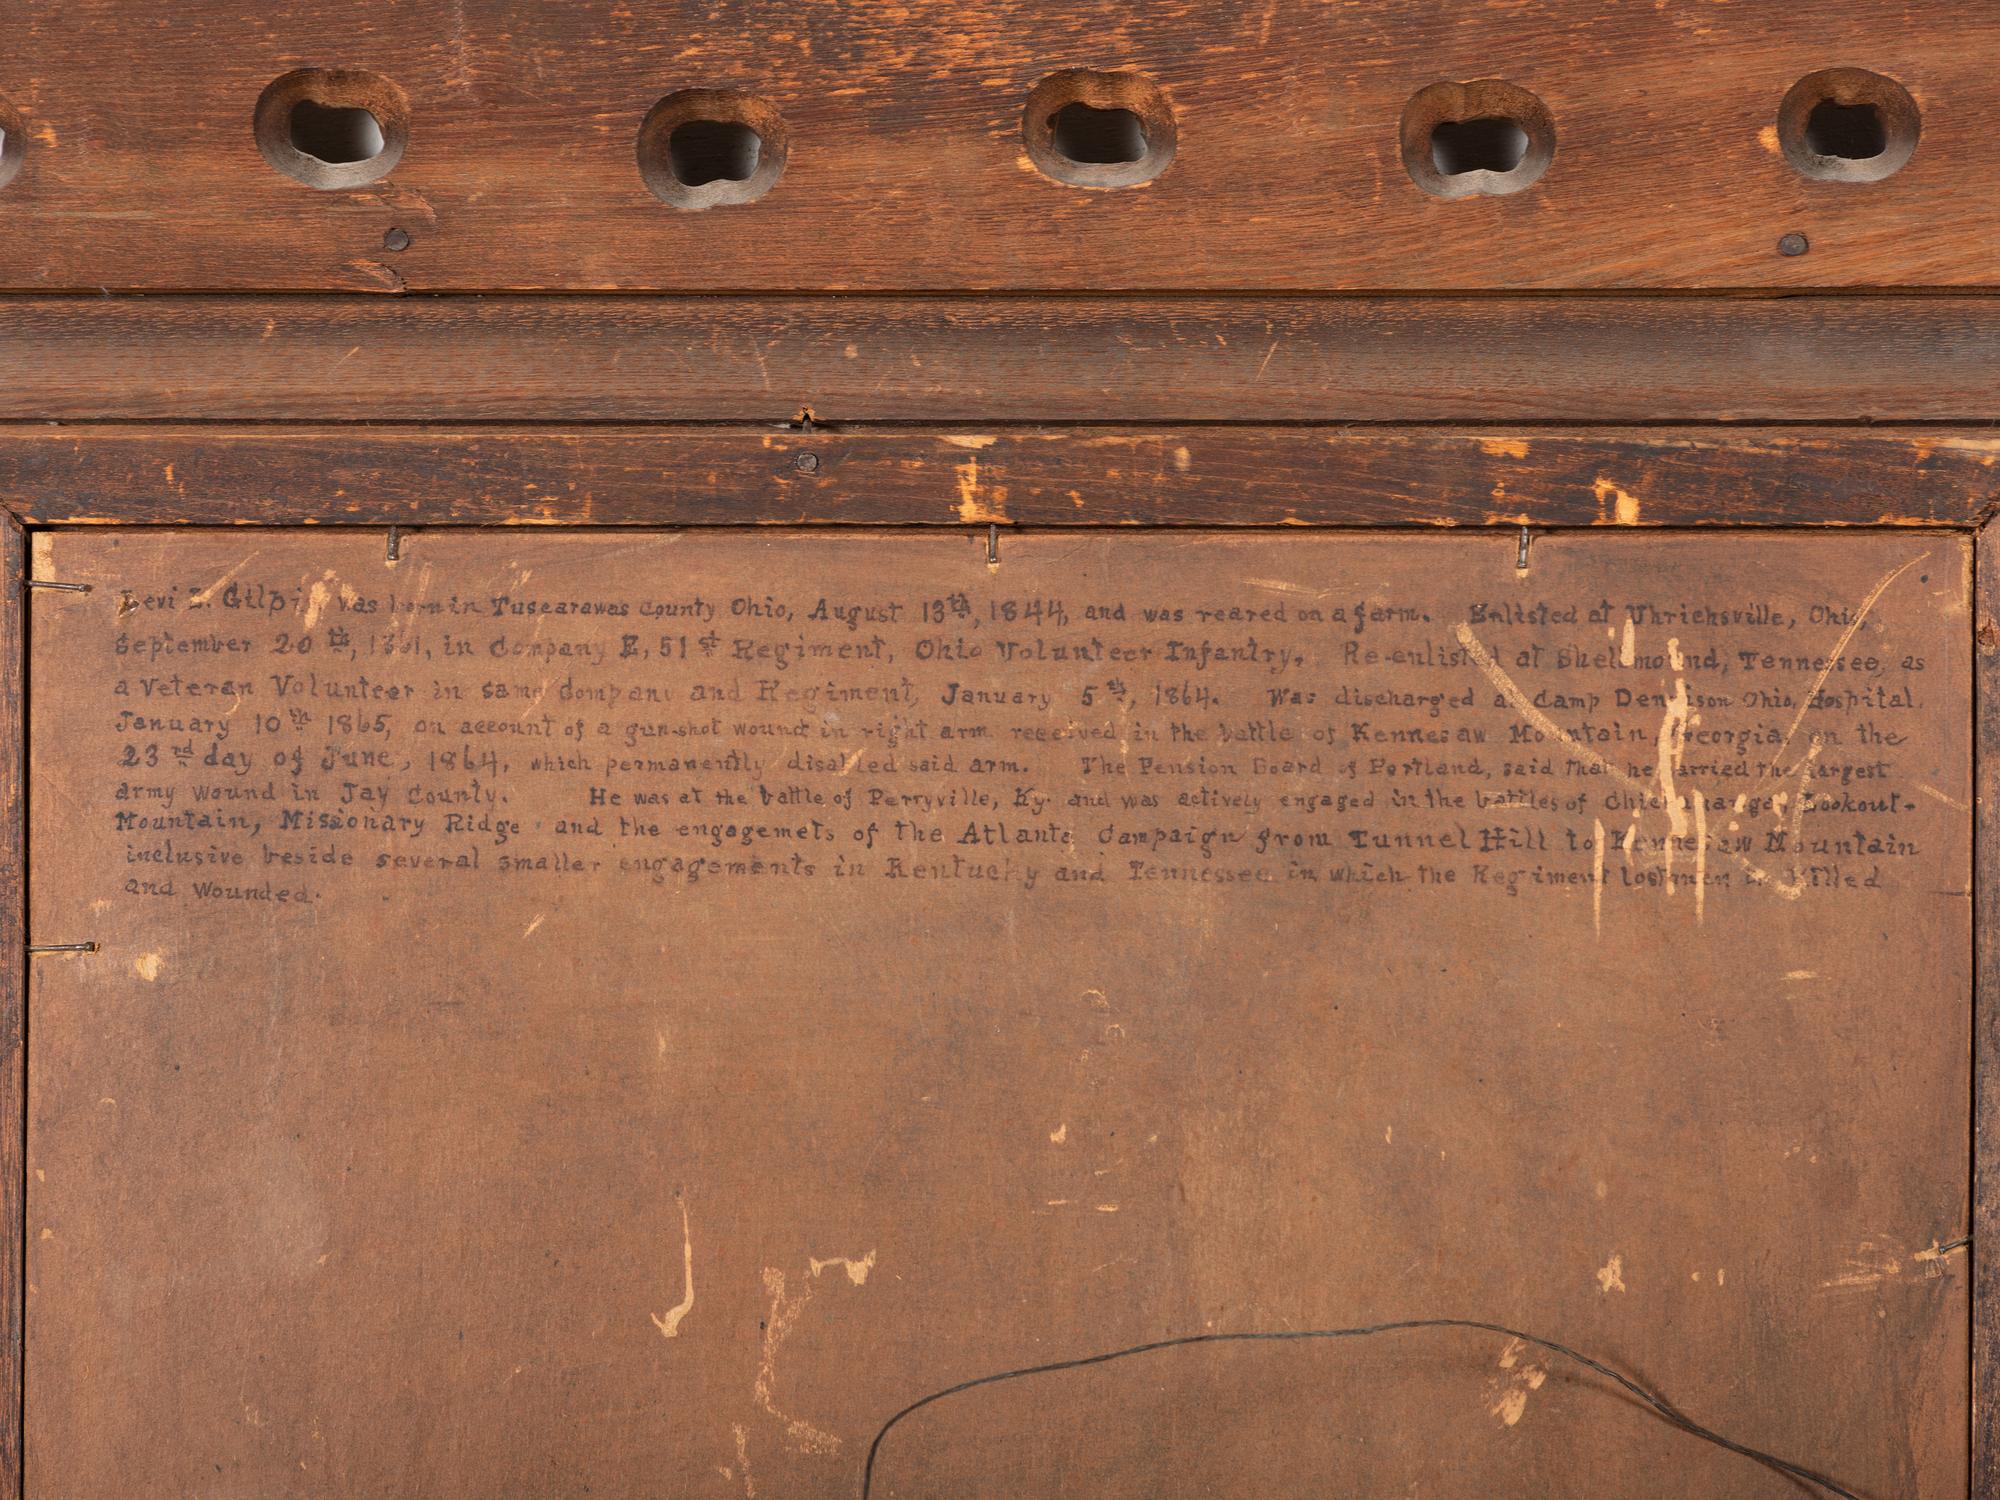 Levi L. Gilpin was born in Tuscarawas County Ohio, August 13th, 1844, and was reared on a farm. Enlisted at Uhrichsville, Ohio,
September 20th, 1861, in Company E, 51st Regiment, Ohio Volunteer Infantry. Re-enlisted at Shellmound, Tennessee, as
a Veteran Volunteer in same Company and Regiment, January 5th, 1864. Was discharged at Camp Dennison Ohio, Hospital,
January 10th 1865, on account of a gun-shot wound in right arm received in the battle of Kennesaw Mountain, Georgia, on the
23rd day of June, 1864, which permanently disabled said arm. The Pension Board of Portland, said that he carried the largest
army wound in Jay County. He was at the battle of Perryville, Ky. and was actively engaged in the battles of Chickamauga, Lookout-
Mountain, Missionary Ridge and the engagemets of the Atlanta Campaign from Tunnel Hill to Kennesaw Mountain
inclusive beside several smaller engagements in Kentucky and Tennessee in which the Regiment lost men in Killed
and Wounded.